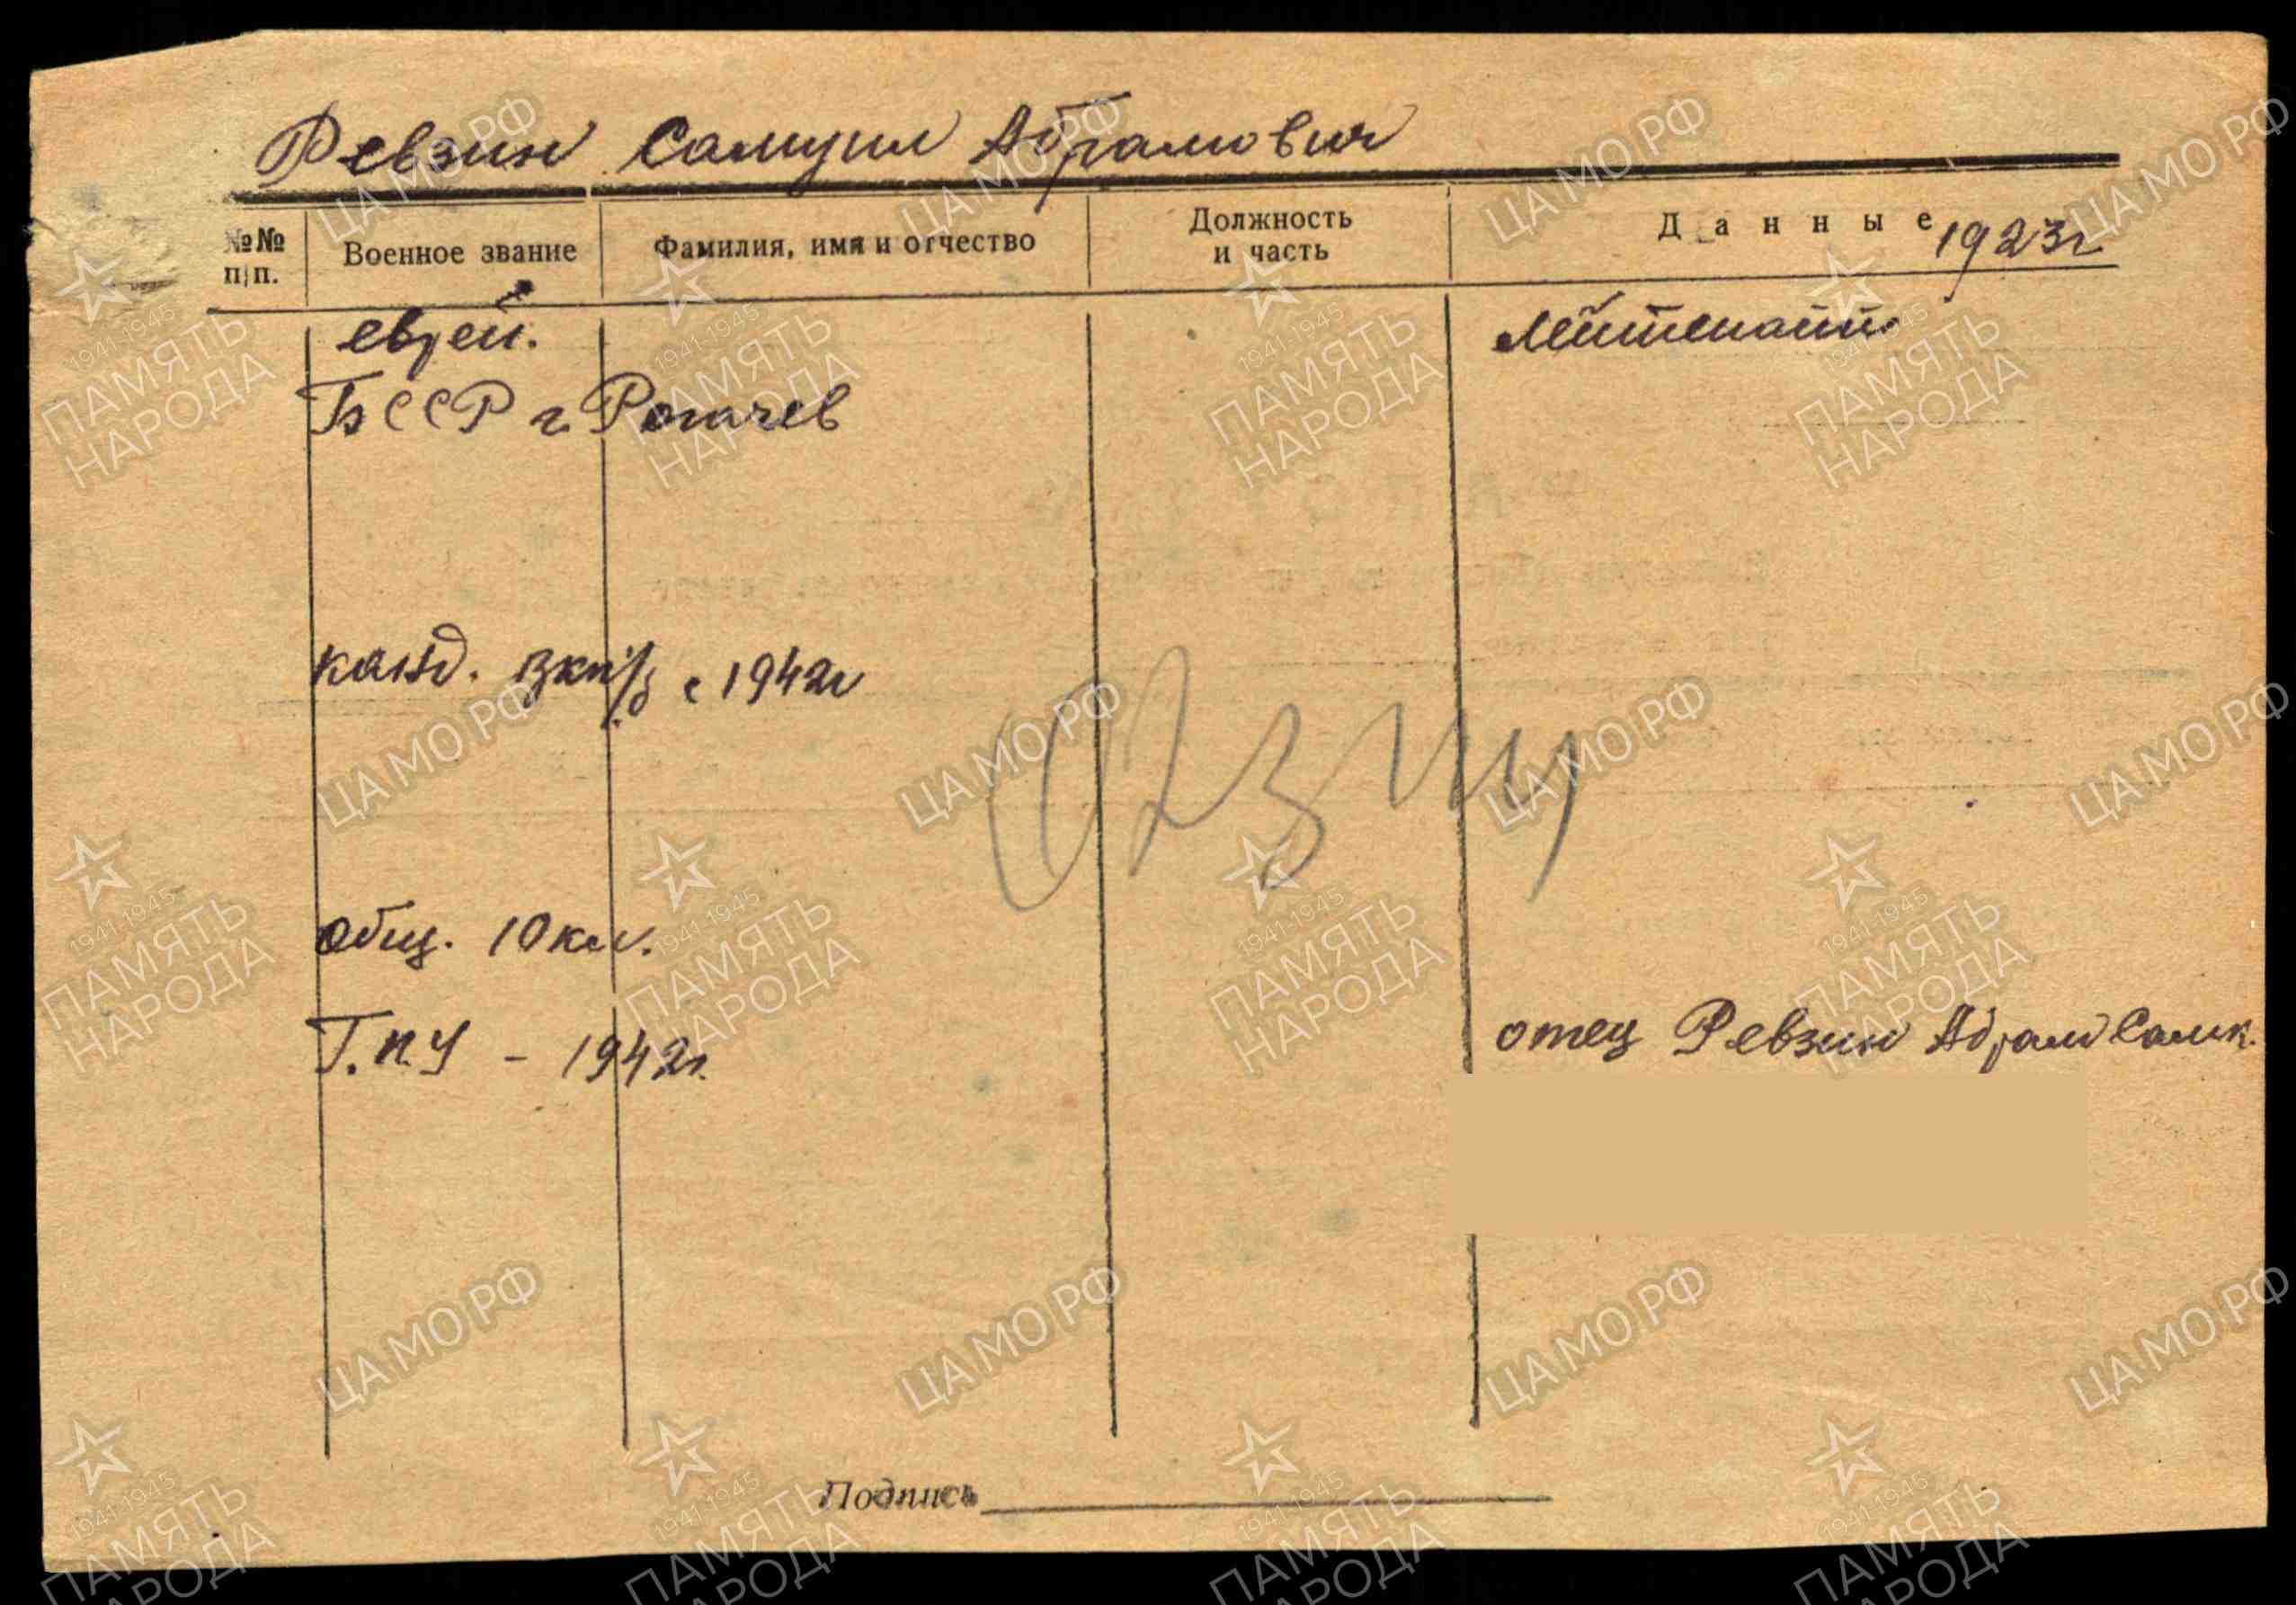 Ревзин Самуил Абрамович
№№ п/п. Военное звание Фамилия, имя и отчество Должность и часть Данные 1923г
еврей. лейтенант
БССР г Рогачев
канд. ВКП/б с 1942г
общ. 10 кл.
Т.П.У - 1942г. отец Ревзин Абрам Самк.
Подпись
ЦАМО РФ
1941-1945
ПАМЯТЬ
НАРОДА